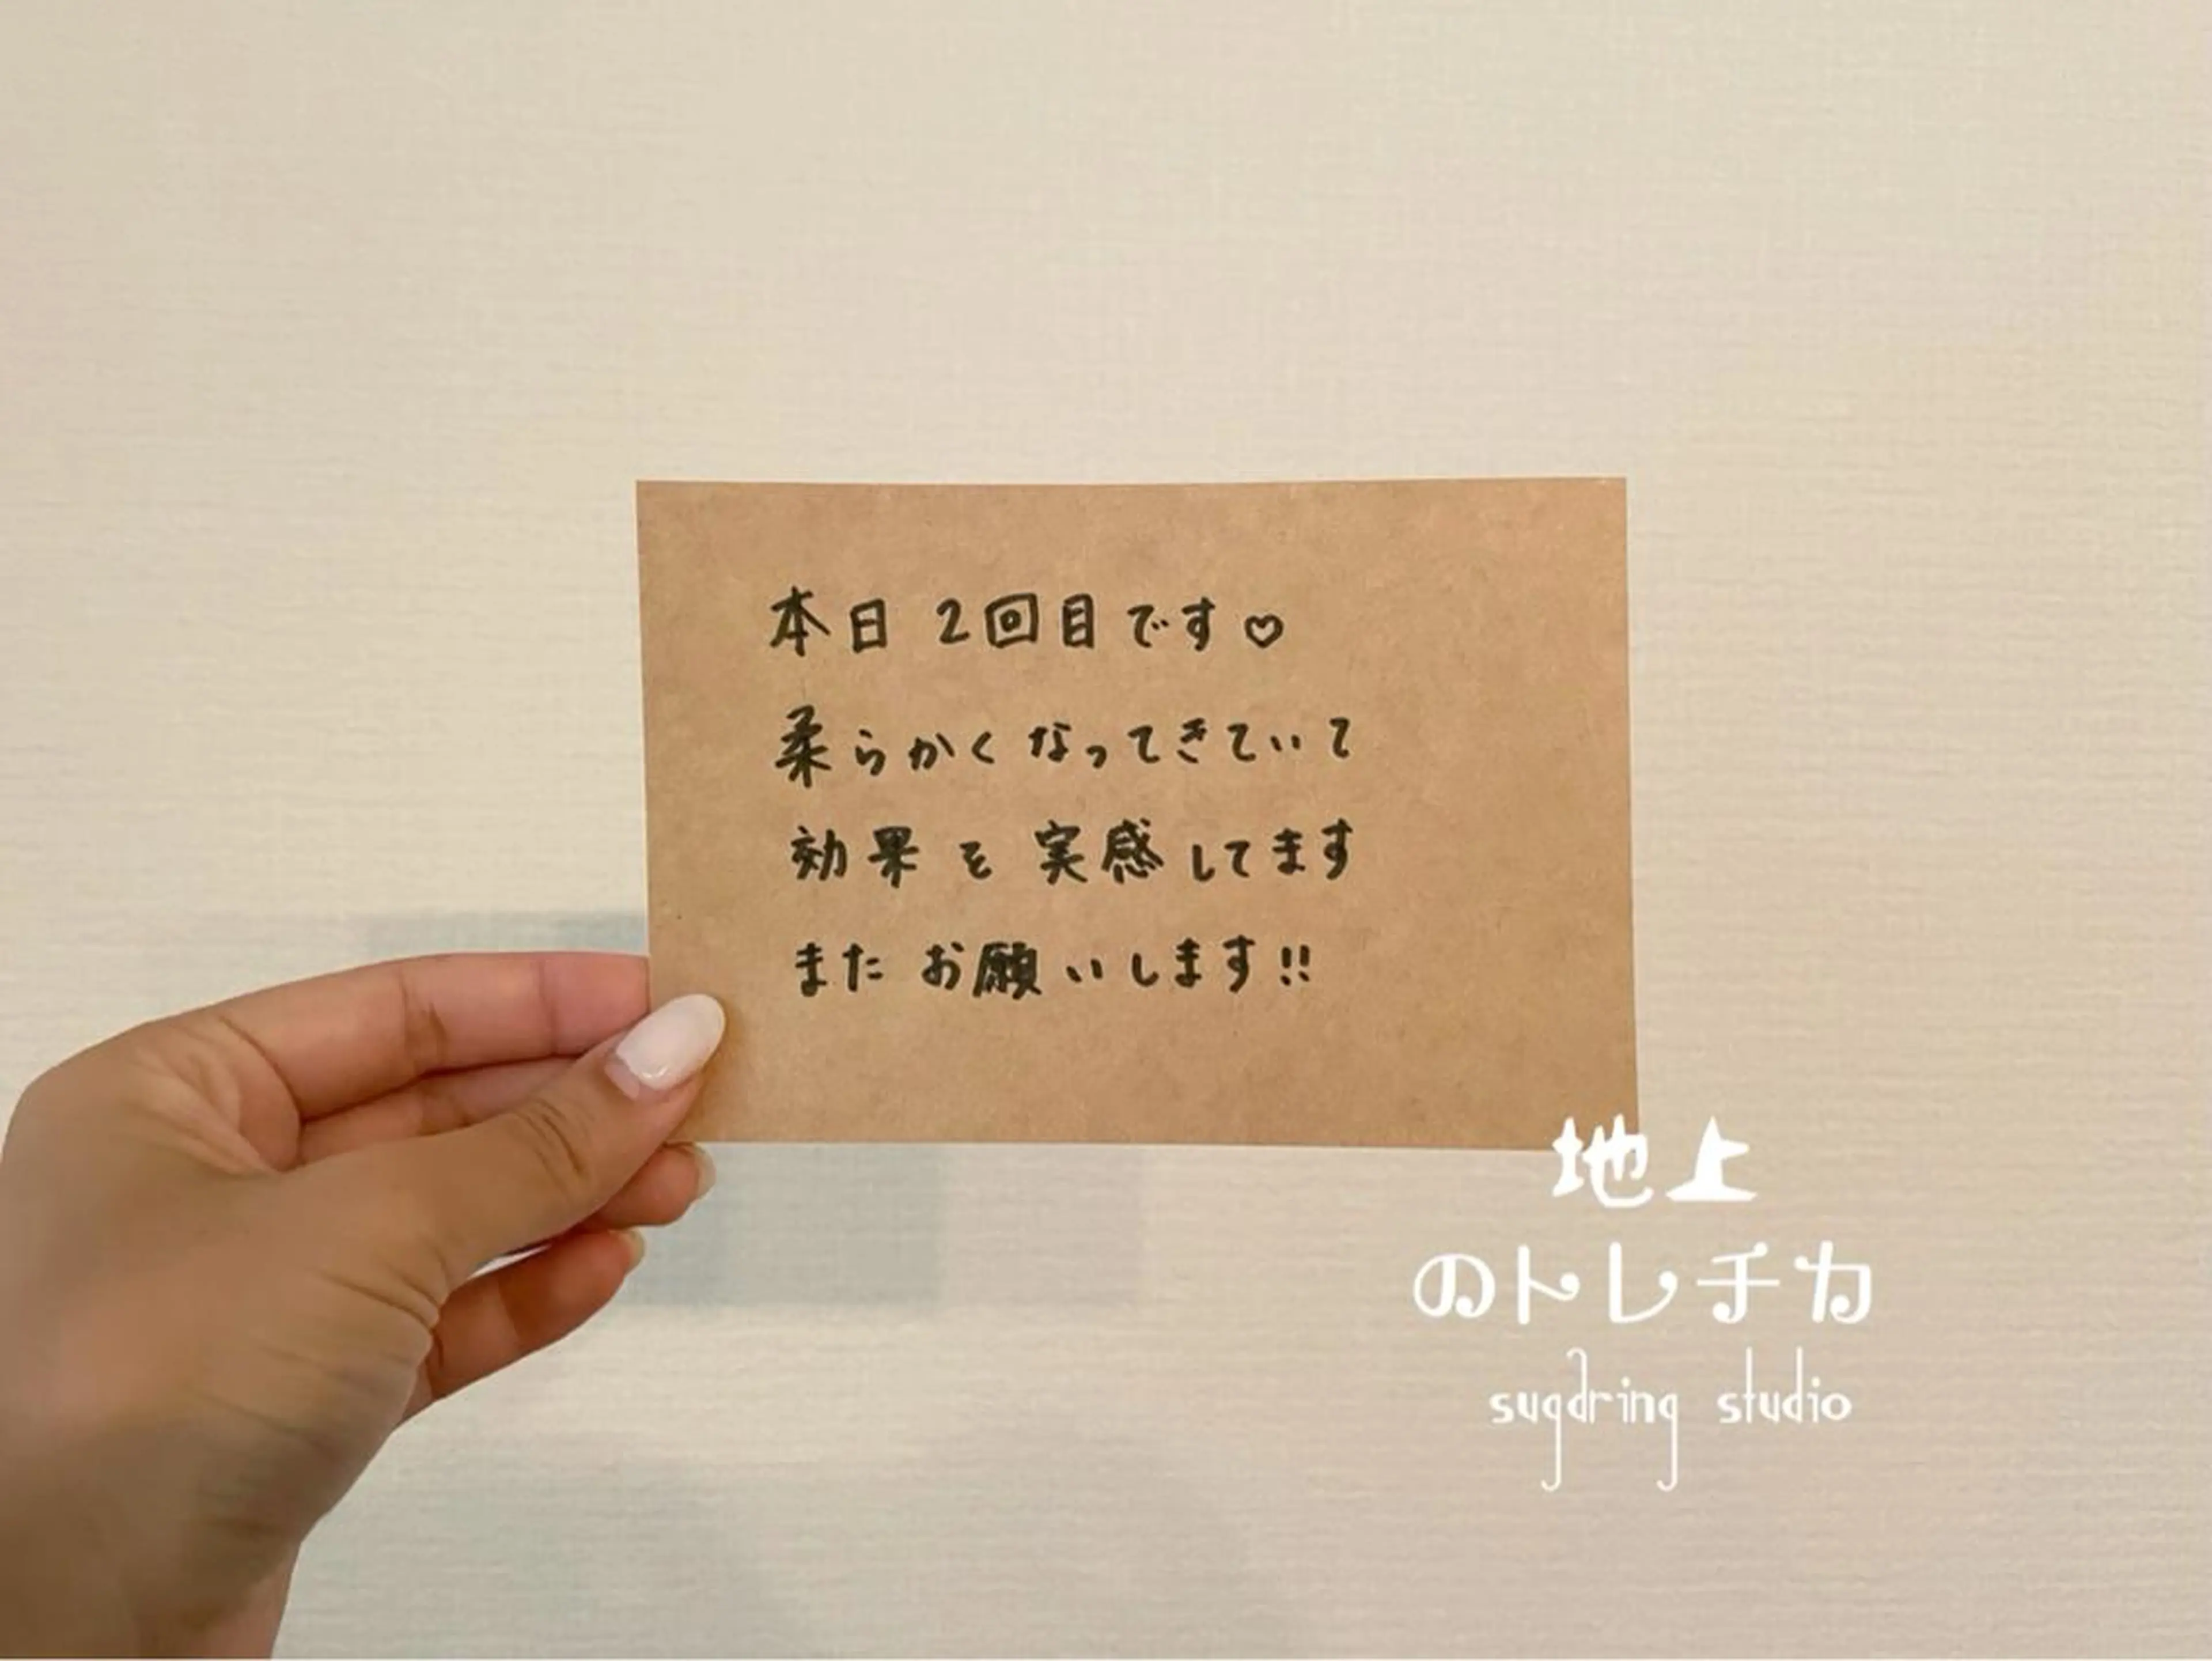 本日 2回目です♡
柔らかくなってきていて
効果を実感してます
また お願いします!!
地上
のトレチカ
sugdring studio